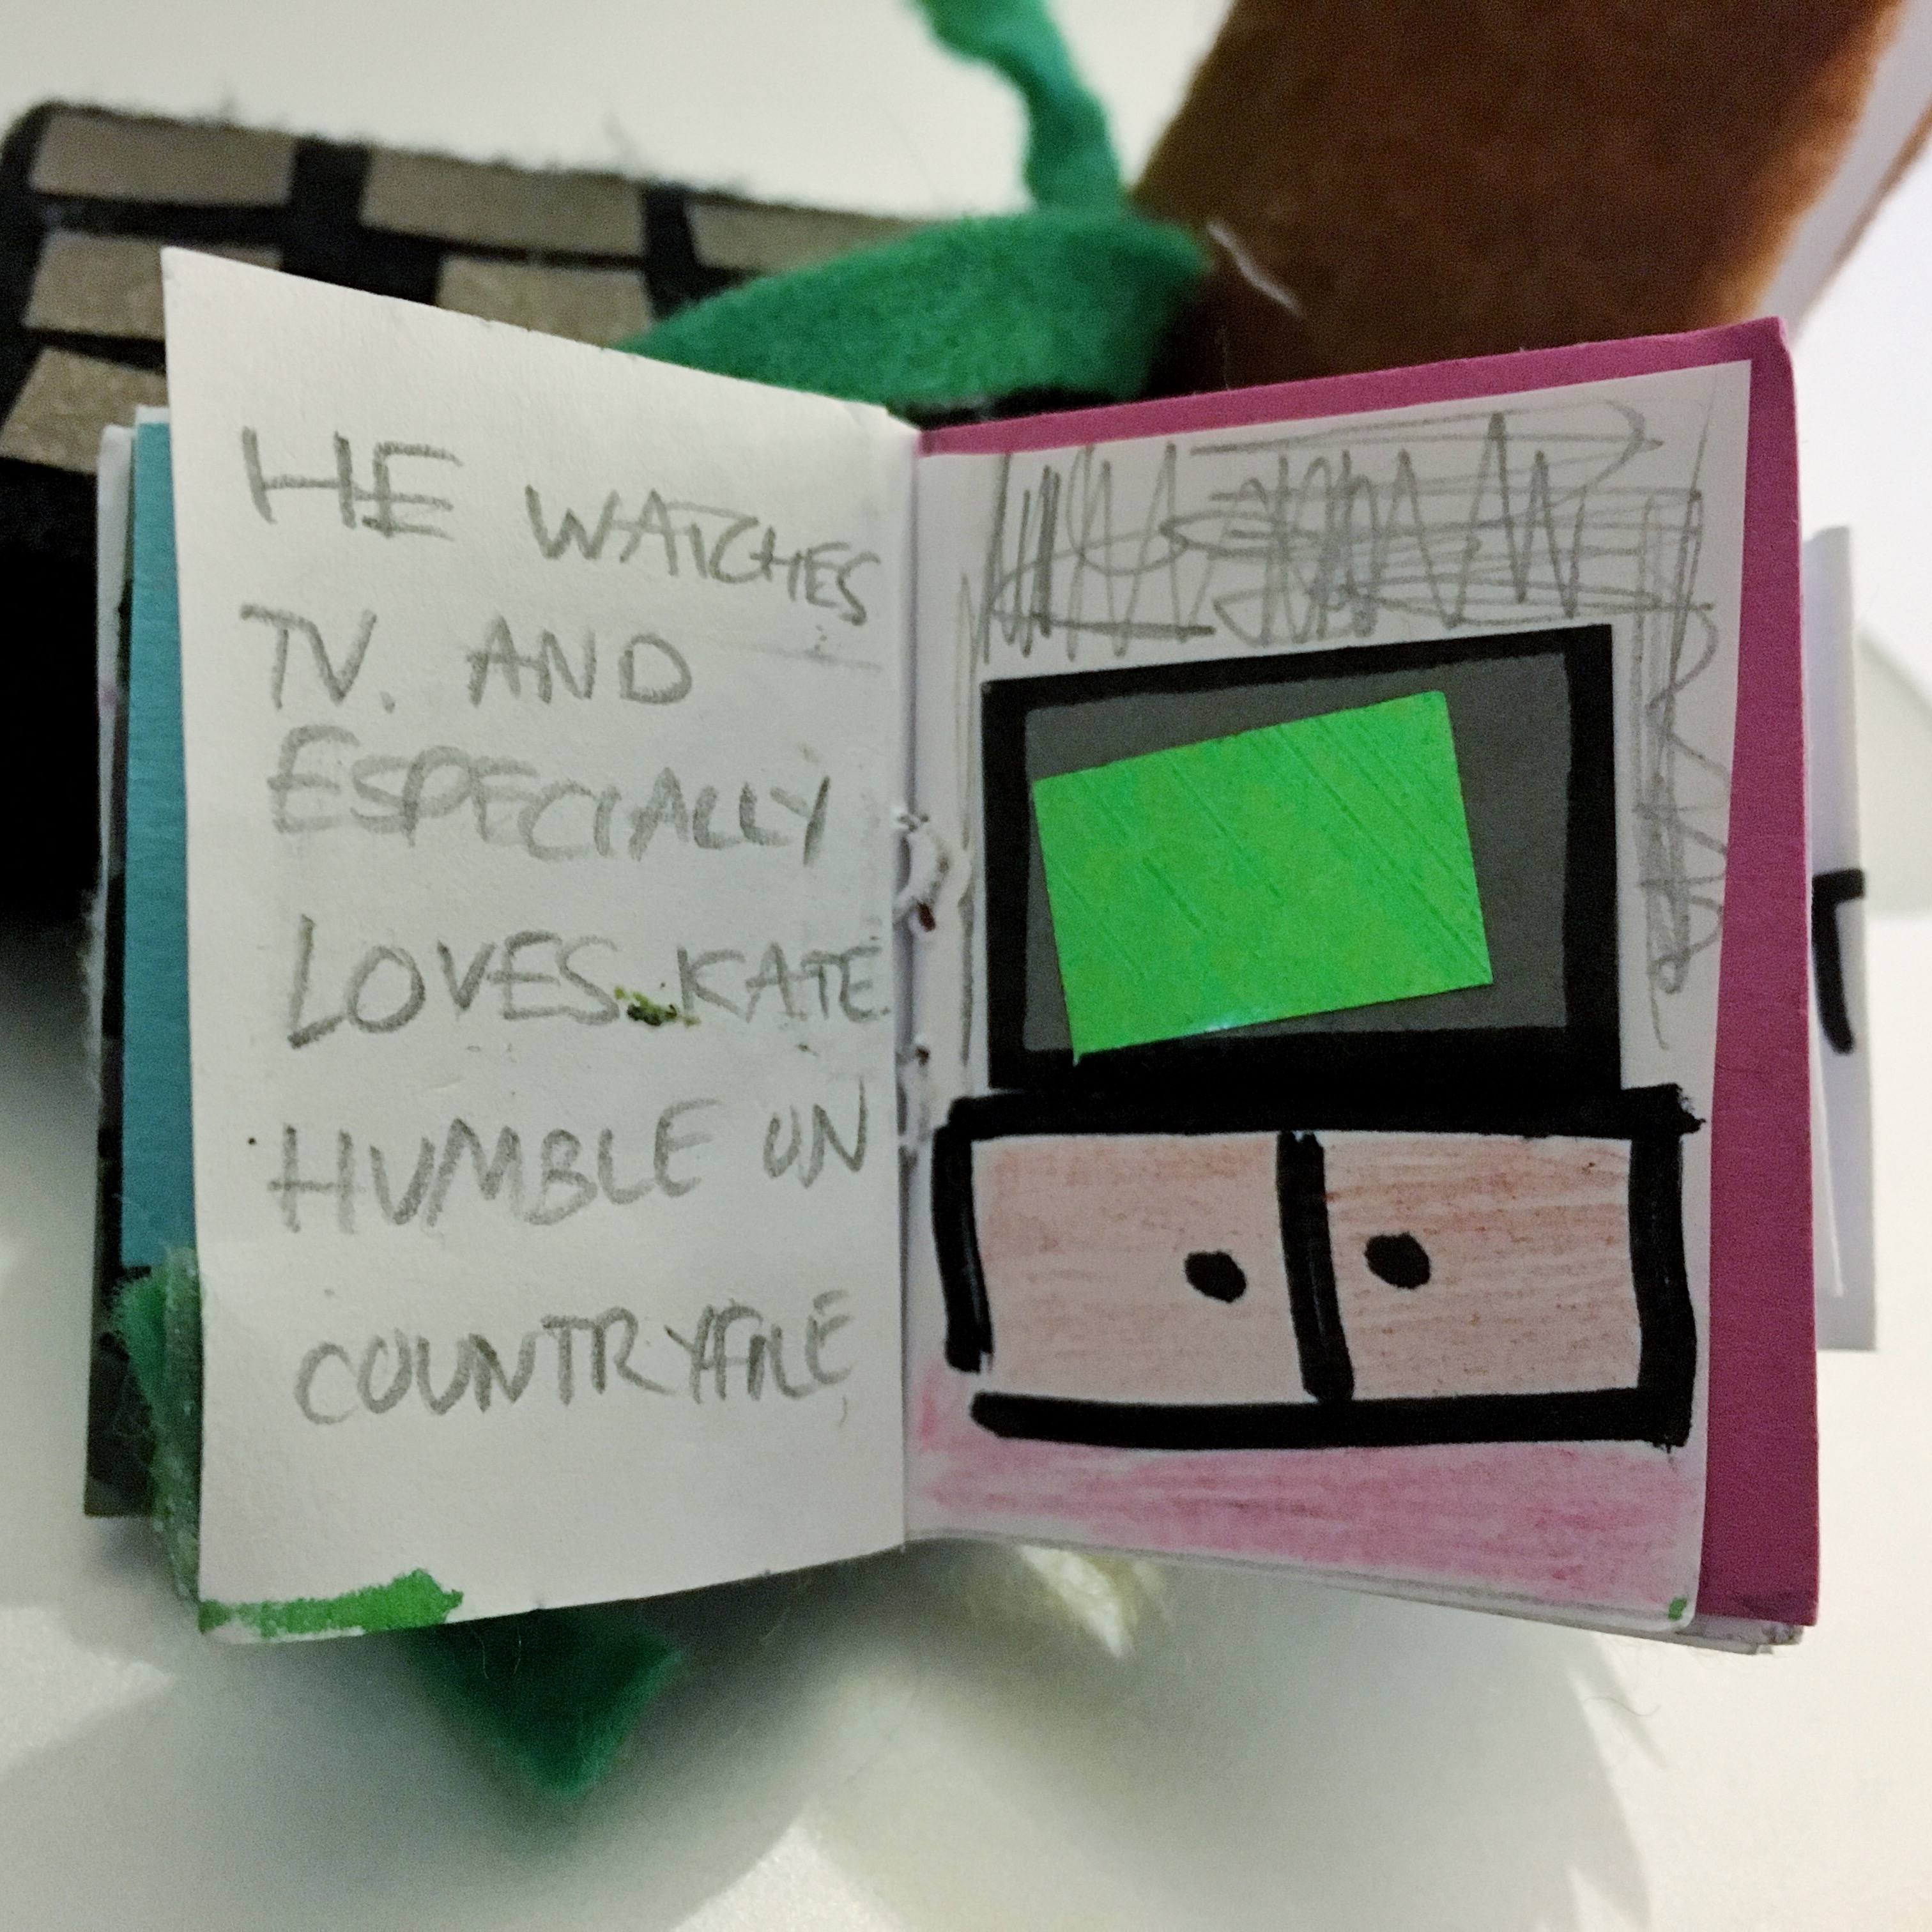 HE WATCHES
TV. AND
ESPECIALLY
LOVES KATE
HUMBLE ON
COUNTRYFILE